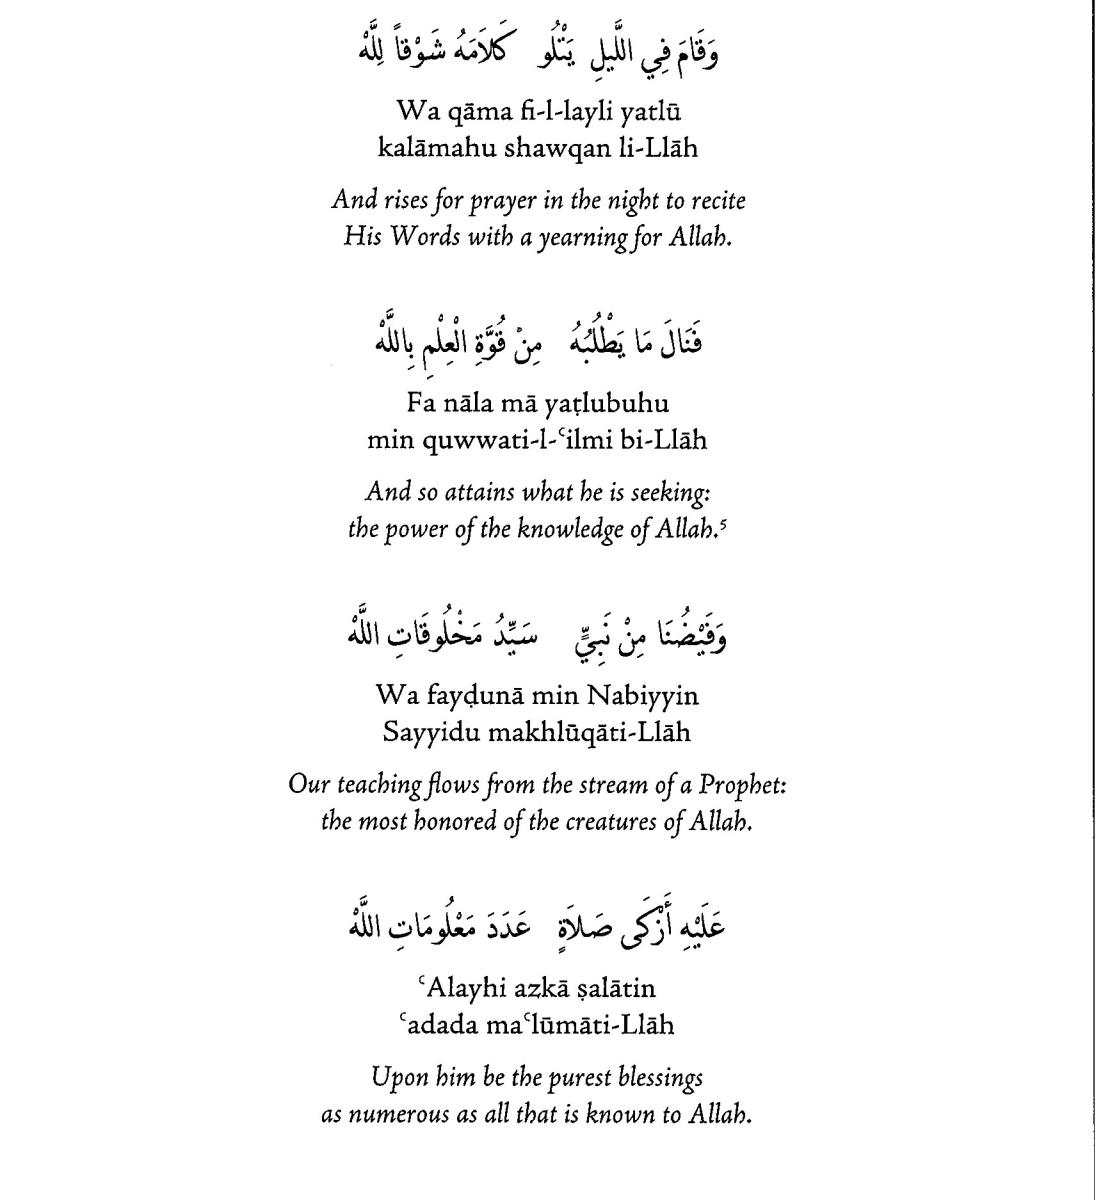 وَقَامَ فِي اللَّيلِ يَتْلُو كَلَامَهُ شَوْقاً لِلَّهْ
Wa qāma fi-l-layli yatlū
kalāmahu shawqan li-Llāh
And rises for prayer in the night to recite
His Words with a yearning for Allah.
فَنَالَ مَا يَطْلُبُهُ مِنْ قُوَّةِ الْعِلْمِ بِاللَّهْ
Fa nāla mā yaṭlubuhu
min quwwati-l-ʿilmi bi-Llāh
And so attains what he is seeking:
the power of the knowledge of Allah.⁵
وَفَيْضُنَا مِنْ نَبِيٍّ سَيِّدُ مَخْلُوقَاتِ اللَّهْ
Wa fayḍunā min Nabiyyin
Sayyidu makhlūqāti-Llāh
Our teaching flows from the stream of a Prophet:
the most honored of the creatures of Allah.
عَلَيْهِ أَزْكَى صَلاَةٍ عَدَدَ مَعْلُومَاتِ اللَّهْ
ʿAlayhi azkā ṣalātin
ʿadada maʿlūmāti-Llāh
Upon him be the purest blessings
as numerous as all that is known to Allah.